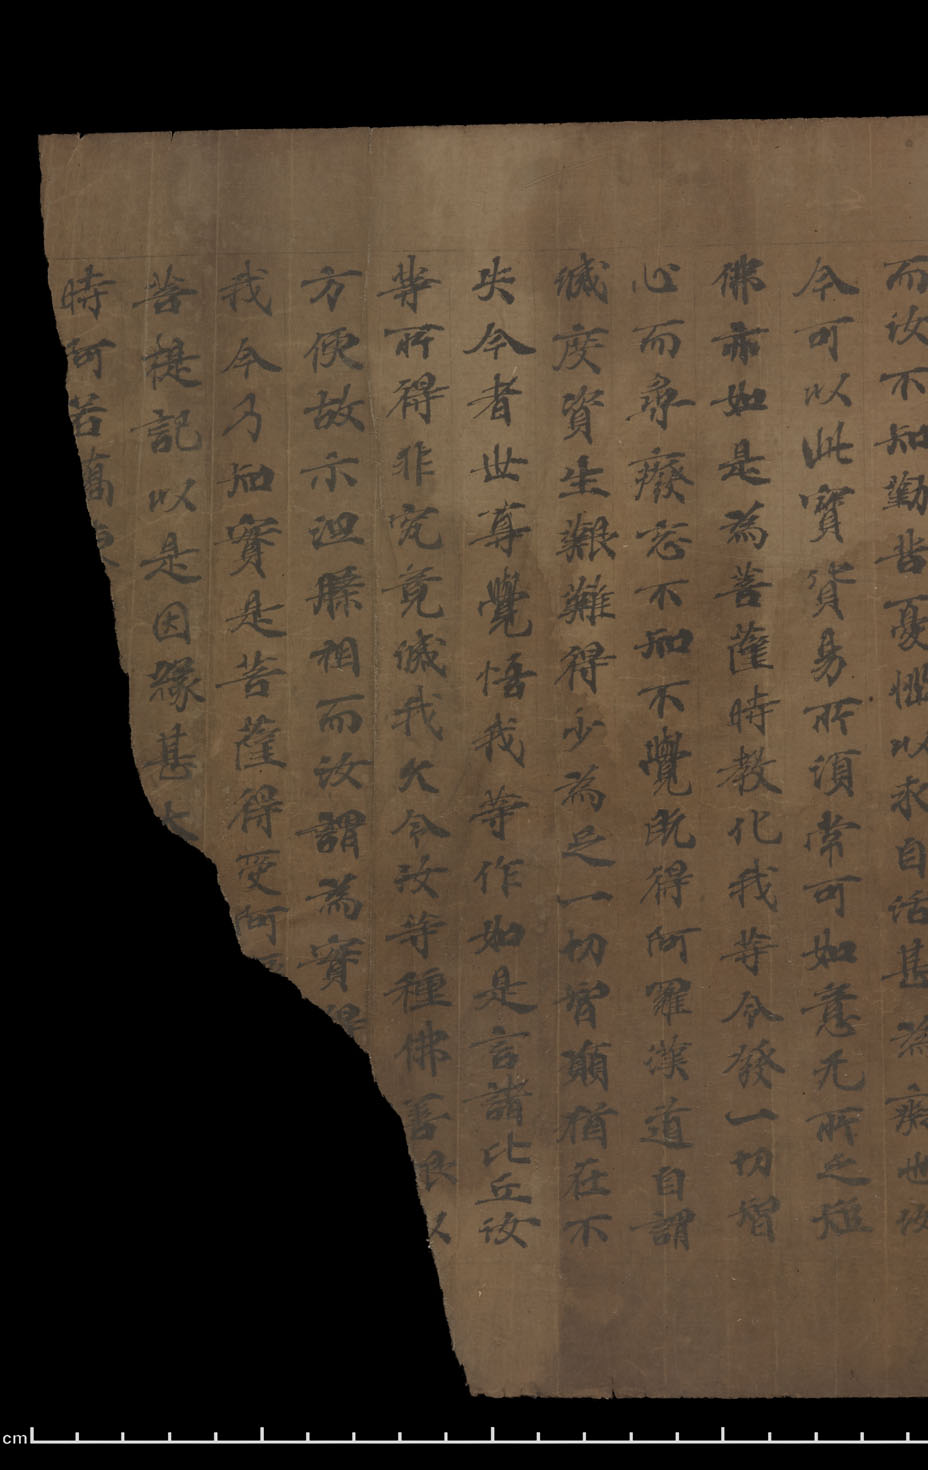 而汝不知勤苦憂惱以求自活甚為癡也汝
今可以此寶貨易所須常可如意无所乏短
佛亦如是為菩薩時教化我等令發一切智
心而尋癈忘不知不覺既得阿羅漢道自謂
滅度資生艱難得少為足一切智願猶在不
失今者世尊覺悟我等作如是言諸比丘汝
等所得非究竟滅我久令汝等種佛善根以
方便故示泹縢相而汝謂為實得
我今乃知實是菩薩得受阿
菩提記以是因緣甚大
時阿若憍